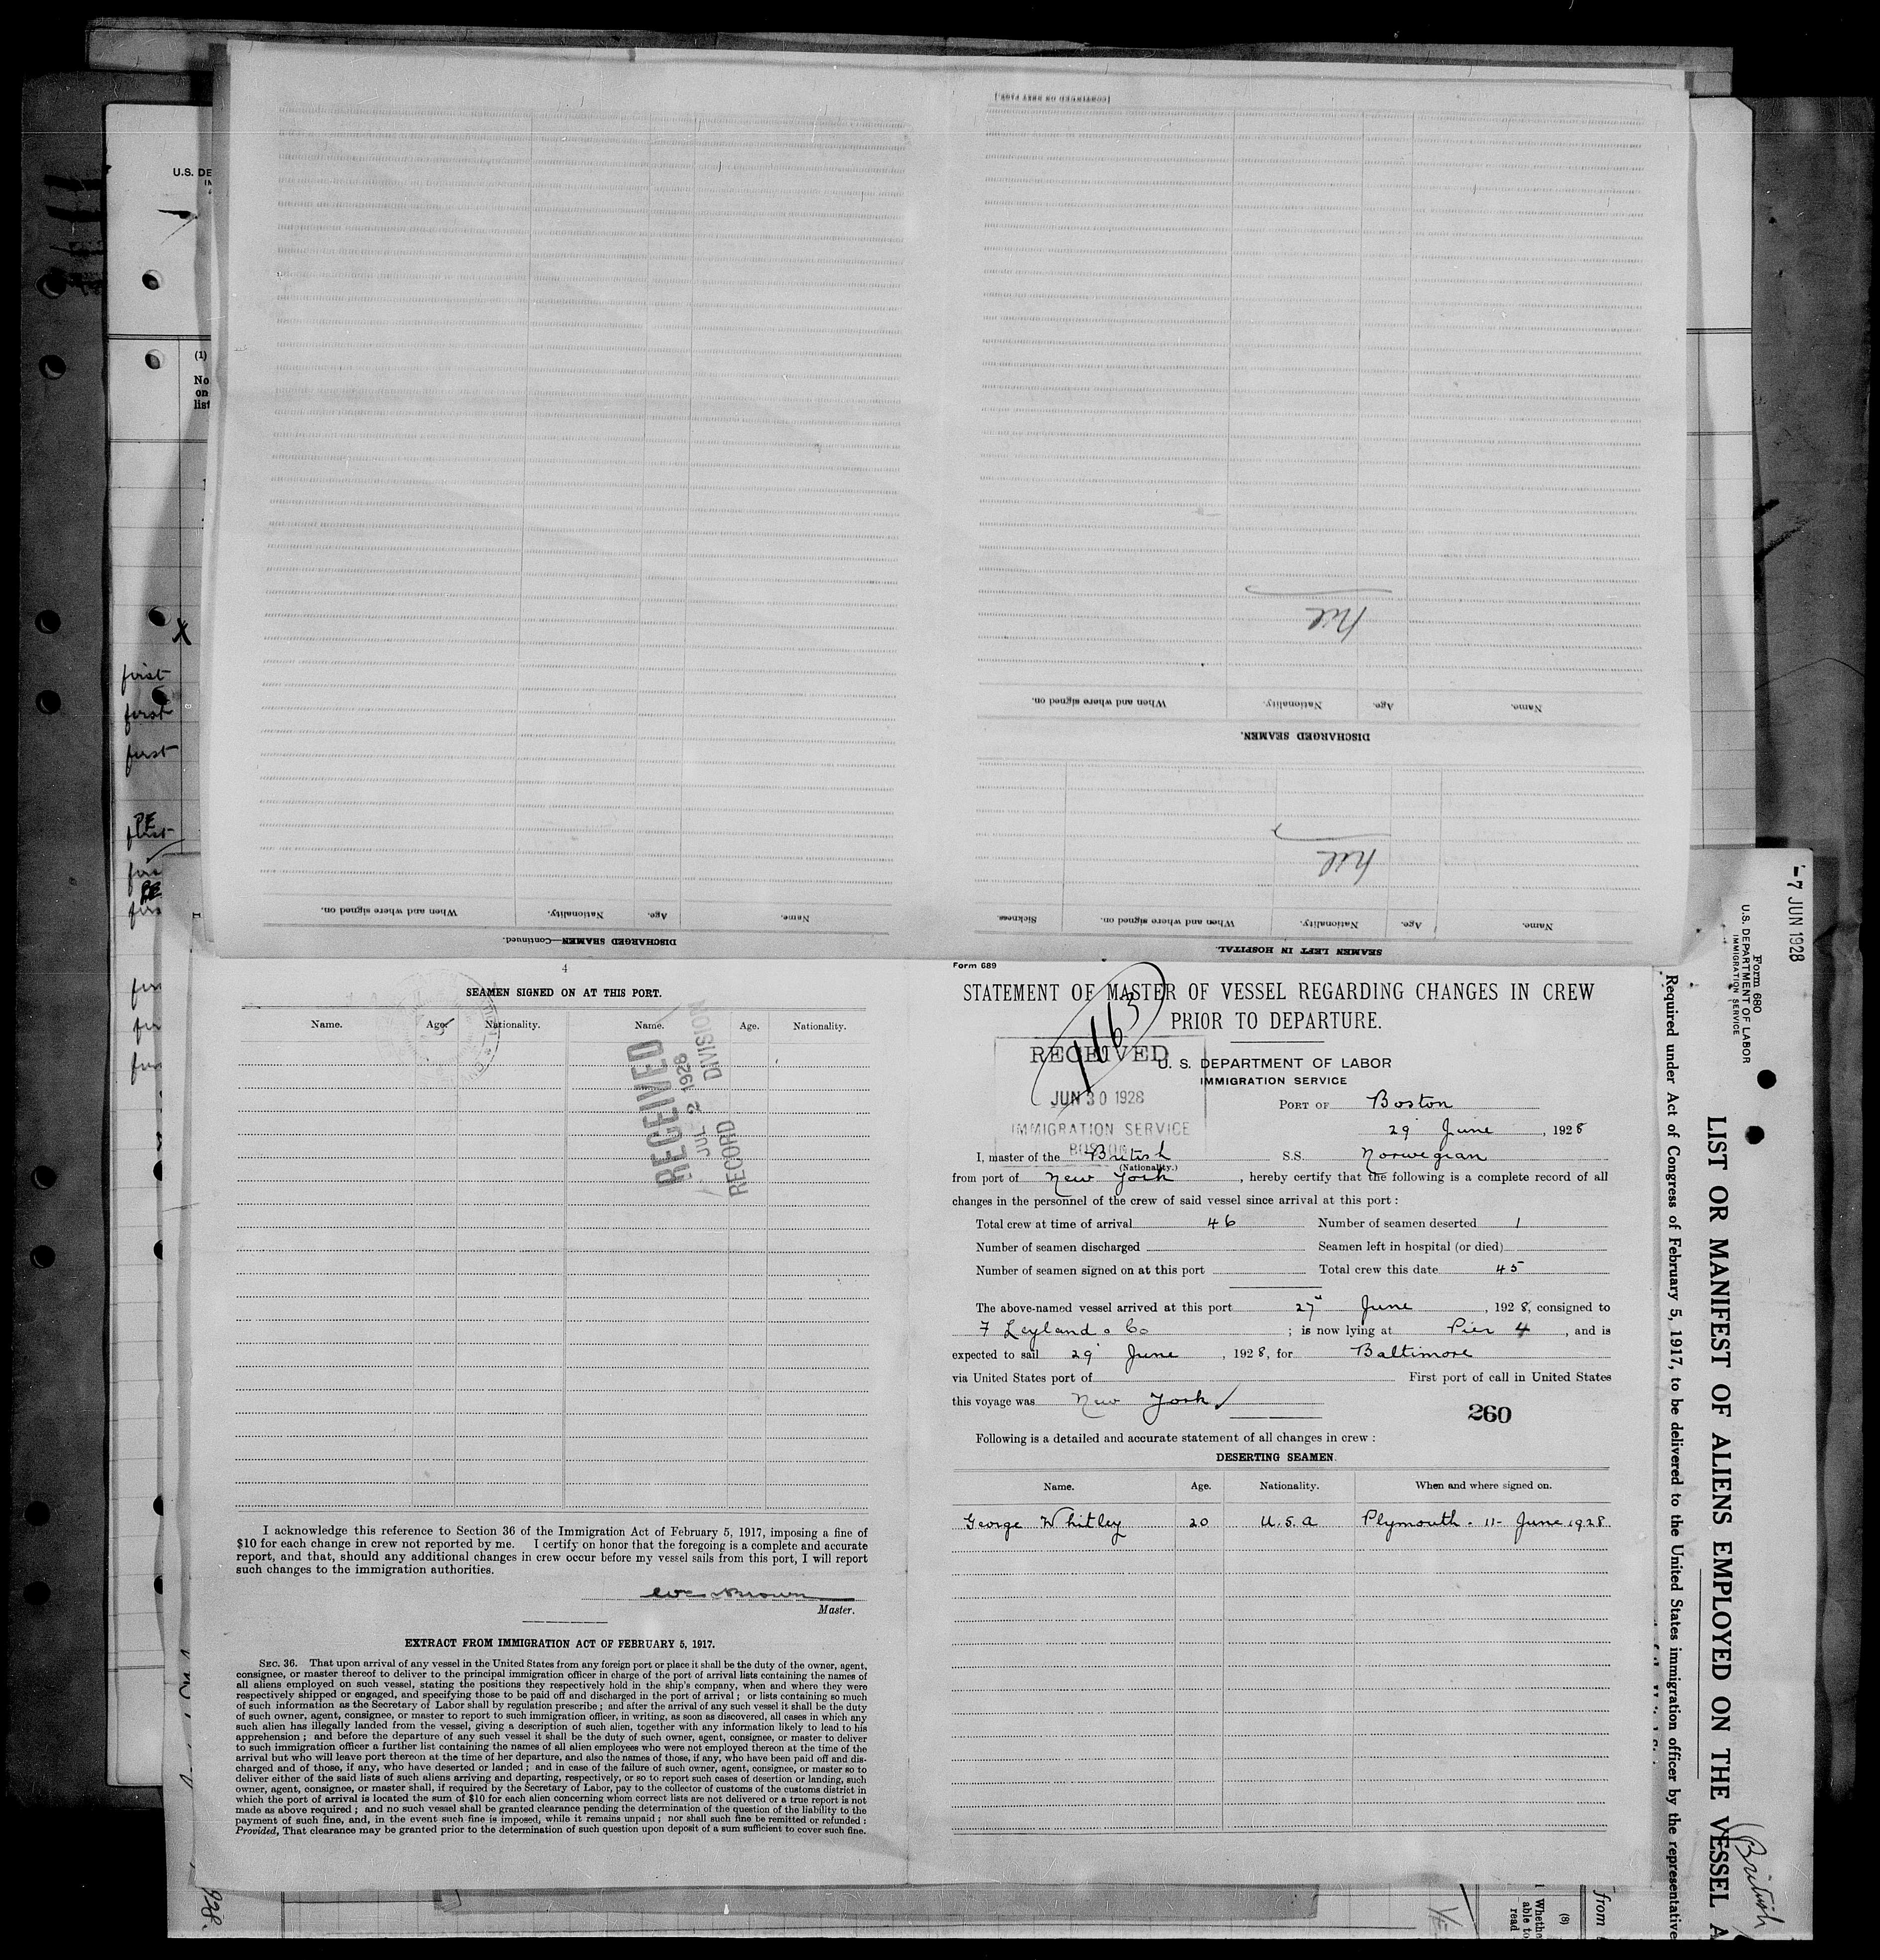 [CONTINUED ON NEXT PAGE.]
nil
Name.
Age.
Nationality.
When and where signed on.
DISCHARGED SEAMEN.
nil
Name.
Age.
Nationality.
When and where signed on.
Sickness.
SEAMEN LEFT IN HOSPITAL.
Name.
Age.
Nationality.
When and where signed on.
DISCHARGED SEAMEN—Continued.
U.S. DE
(1)
No
on
list
X
first
first
first
PE
first
4
SEAMEN SIGNED ON AT THIS PORT.
Name. Age. Nationality. Name. Age. Nationality.
RECEIVED
JUL 2 1928
RECORD DIVISION
I acknowledge this reference to Section 36 of the Immigration Act of February 5, 1917, imposing a fine of
$10 for each change in crew not reported by me. I certify on honor that the foregoing is a complete and accurate
report, and that, should any additional changes in crew occur before my vessel sails from this port, I will report
such changes to the immigration authorities.
Brown
Master.
EXTRACT FROM IMMIGRATION ACT OF FEBRUARY 5, 1917.
SEC. 36. That upon arrival of any vessel in the United States from any foreign port or place it shall be the duty of the owner, agent,
consignee, or master thereof to deliver to the principal immigration officer in charge of the port of arrival lists containing the names of
all aliens employed on such vessel, stating the positions they respectively hold in the ship's company, when and where they were
respectively shipped or engaged, and specifying those to be paid off and discharged in the port of arrival; or lists containing so much
of such information as the Secretary of Labor shall by regulation prescribe; and after the arrival of any such vessel it shall be the duty
of such owner, agent, consignee, or master to report to such immigration officer, in writing, as soon as discovered, all cases in which any
such alien has illegally landed from the vessel, giving a description of such alien, together with any information likely to lead to his
apprehension; and before the departure of any such vessel it shall be the duty of such owner, agent, consignee, or master to deliver
to such immigration officer a further list containing the names of all alien employees who were not employed thereon at the time of the
arrival but who will leave port thereon at the time of her departure, and also the names of those, if any, who have been paid off and dis-
charged and of those, if any, who have deserted or landed; and in case of the failure of such owner, agent, consignee, or master so to
deliver either of the said lists of such aliens arriving and departing, respectively, or so to report such cases of desertion or landing, such
owner, agent, consignee, or master shall, if required by the Secretary of Labor, pay to the collector of customs of the customs district in
which the port of arrival is located the sum of $10 for each alien concerning whom correct lists are not delivered or a true report is not
made as above required; and no such vessel shall be granted clearance pending the determination of the question of the liability to the
payment of such fine, and, in the event such fine is imposed, while it remains unpaid; nor shall such fine be remitted or refunded:
Provided, That clearance may be granted prior to the determination of such question upon deposit of a sum sufficient to cover such fine.
Form 689
STATEMENT OF MASTER OF VESSEL REGARDING CHANGES IN CREW
PRIOR TO DEPARTURE.
1163
U. S. DEPARTMENT OF LABOR
IMMIGRATION SERVICE
RECEIVED
JUN 30 1928
IMMIGRATION SERVICE
BOSTON
PORT OF Boston
29 June, 1928
I, master of the British S.S. Norwegian
(Nationality.)
from port of New York, hereby certify that the following is a complete record of all
changes in the personnel of the crew of said vessel since arrival at this port:
Total crew at time of arrival 46 Number of seamen deserted 1
Number of seamen discharged Seamen left in hospital (or died)
Number of seamen signed on at this port Total crew this date 45
The above-named vessel arrived at this port 27 June, 1928, consigned to
F Leyland & Co; is now lying at Pier 4, and is
expected to sail 29 June, 1928, for Baltimore
via United States port of First port of call in United States
this voyage was New York
260
Following is a detailed and accurate statement of all changes in crew:
DESERTING SEAMEN.
Name. Age. Nationality. When and where signed on.
George Whitley 20 U.S.A Plymouth - 11- June 1928
-7 JUN 1928
Form 680
U.S. DEPARTMENT OF LABOR
IMMIGRATION SERVICE
LIST OR MANIFEST OF ALIENS EMPLOYED ON THE VESSEL A
Required under Act of Congress of February 5, 1917, to be delivered to the United States immigration officer by the representative
(British
from
(8)
Whethe
able to
read
928.